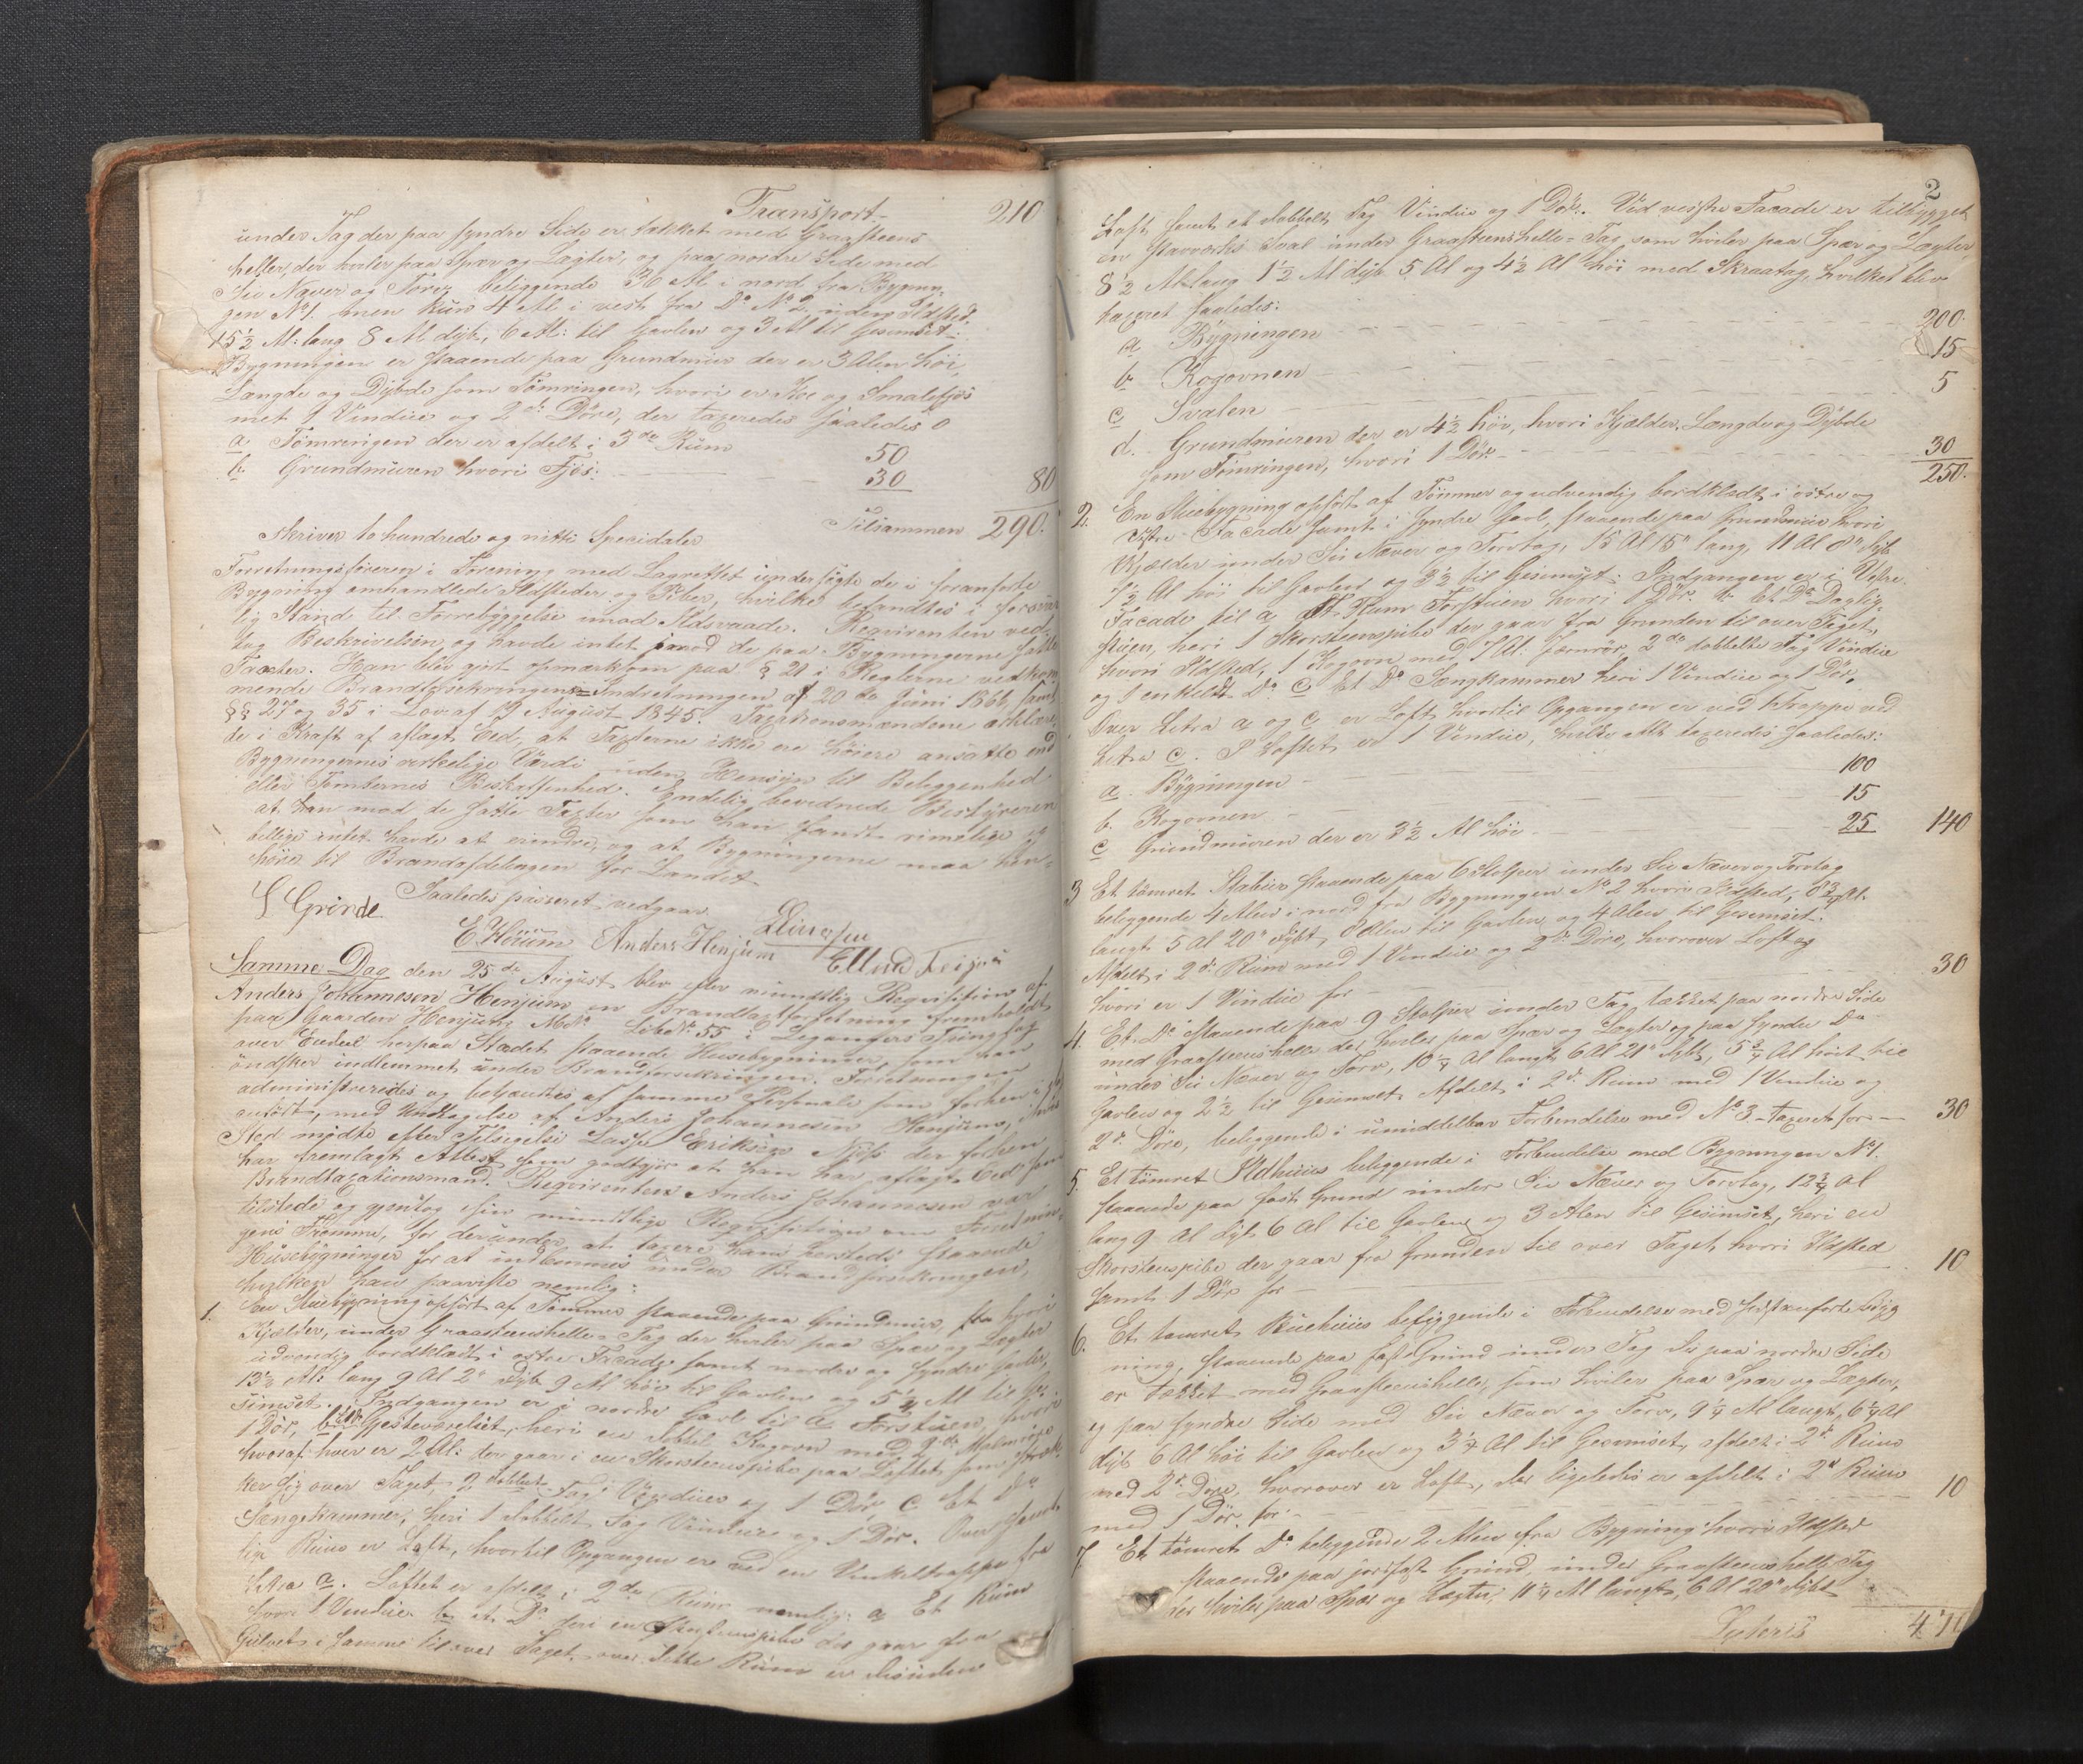 Transport 210
under Tag der paa søndre Side er tækket med Graasteens
heller, der hviler paa Spær og Lægter, og paa nordre Side med
Siv Næver og Torv, beliggende 36 Al i nord fra Bygnin-
gen No 1. men kuns 4 Al i vest fra Do No 2 uden Ildsted
15½ Al: lang 8 Al dyb, 6 Al: til Gavlen og 3 Al til Gesimset:
Bygningen er staaende paa Grundmur der er 3 Alen höi,
Længde og Dybde som Tömringen, hvori er Koe og Smalefjös
met 1 Vindue og 2de Döre, der taxeredes saaledes
a Tömringen der er afdelt i 3de Rum 50
b. Grundmuren hvori Fjös: 30 80
Tilsammen 290.
skriver to hundrede og nitti Specidaler
Forretningsföreren i Forening med Lagrettet undersögte de i foranförte
Bygning omhandlede Ildsteder og Piber, hvilke befandtes i forsvar
lig Stand til Forrebyggelse imod Ildsvaade. Reqvirenten ved
tog Beskrivelsen og havde intet imod de paa Bygningerne satte
Taxter. Han blev gjort opmærksom paa § 21 i Reglerne vedkom
mende Brandforsikringens Indretningen af 20de Juni 1866, samt
§§ 27 og 35 i Lov af 19 August 1845. Taxationsmændene erklære
de i Kraft af aflagt Eed, at Taxterne ikke ere höiere ansatte end
Bygningernes virkelige Værdi uden Hensyn til Beliggenhed
eller Tomternes Beskaffenhed. Endelig bevidnede Bestyreren
at han mod de satte Taxter som han fandt rimelige og
billige intet havde at erindre, og at Bygningerne maa hen-
höre til Brandafdelingen for Landet
Saaledes passeret vedgaar
S Grinde
E Hörum Anders Henjum
Samme Dag den 25de August blev efter mundtlig Reqvisition af
Anders Johannesen Henjum en Brandtaxtforretning fremholdt
paa Gaarden Henjum Mtr. Löbe No 55 i Legangers Tinglag
over Endeel herpaa Stædet staaende Huusebygninger, som han
önsker indlemmet under Brandforsikringen. Forretningen
administreredes og betjentes af samme Personale som forhen
anfört, med Undtagelse af Anders Johannesen Henjum, i hvis
Sted mödte efter Tilsigelse Lasse Eriksen Njös der forhen
har fremlagt Attest som godtgjör at han har aflagt Eed som
Brandtaxationsmand. Reqvirenten Anders Johannesen var
tilstede og gjentog sin mundtlige Reqvisition om Forretnin
gens Fremme, for derunder at taxere hans herstedts staaende
Huusebygninger for at indlemmes under Brandforsikringen,
hvilken han paaviste nemlig:
1. En Stuebygning opfört af Tömmer staaende paa Grundmur hvori
Kjælder, under Graasteenshelle-Tag der hviler paa Spær og Lægter
udvendig bordklædt i östre Facade samt nordre og syndre Gavler,
13½ Al: lang 9 Al 2" dyb 9 Al höi til Gavlen og 5¼ Al til Ge-
simset. Indgangen er i nordre Gavl til a Forstuen, hvori
1 Dör, b Gjesteværelset, heri en dobbel Kogovn med 2de
hvoraf hver er 2 Al: der gaar i en Skorsteenspibe paa Loftet som stræk
ker sig over Taget, 2 dobbelte Fag Vinduer og 1 Dör c Et Do
Sængekammer, heri 1 dobbelt Fag Vinduer og 1 Dör. Over samt-
lige Rum er Loft, hvortil Opgangen er ved en Vinkeltrappe fra
Letra a. Loftet er afdelt i 2de Rum nemlig: a Et Rum
hvori 1 Vindue b et Do deri en Skorsteenspibe der gaar fra
Gulvet i samme til over Taget, over dette Rum er desuden
2
Loft samt et dobbelt Fag Vindue og 1 Dör. Ved vestre Facade er tilbygget
en Stavværks Sval under Graasteenshelle-Tag som hviler paa Spær og Lægter
8½ Al lang 1½ Al dyb 5 Al og 4½ Al höi med Skraatag, hvilket blev
taxeret saaledes:
a Bygningen 200.
b. Kogovnen 15
c Svalen 5
d. Grundmuren der er 4½ höi, hvori Kjælder, Længde og Dybde
som Tömringen, hvori 1 Dör 30
250.
2. En Stuebygning opfört af Tömmer og udvendig bordklædt i östre og
vestre Facade samt i syndre Gavl, staaende paa Grundmur hvori
Kjælder under Siv Næver og Torvtag, 15 Al 15" lang, 11 Al 8" dyb
Al höi til Gavlen og 3½ til Gesimset: Indgangen er i Vestre
Facade til a Et Rum Forstuen hvori 1 Dör. b. Et Do Daglig
stuen, heri 1 Skorsteenspibe der gaar fra Grunden til over Taget,
hvori Ildsted, 1 Kogovn med 7 Al. Jernrör, 2de dobbelte Fag Vindue
og 1 enkeldt Do c Et Do Sængkammer heri 1 Vindue og 1 Dör.
Over Letra a og c er Loft hvortil Opgangen er ved Trappe ved
Letra c. I Loftet er 1 Vindue, hvilke alt taxeredes saaledes:
a Bygningen 100
b. Kogovnen 15
c Grundmuren der er 3½ Al höi 25 140
3 Et tömret Stabur staaende paa 6 Stolper under Siv Næver og Torvtag
beliggende 4 Alen i nord fra Bygningen No 2 hvori Ildsted, 8¾ Al.
langt 5 Al 20" dybt, 8 Alen til Gavlen og 4 Alen til Gesimset:
Afdelt i 2de Rum med 1 Vindue og 2de Döre, hvorover Loft og
hvori er 1 Vindue for 30
4. Et Do staaende paa 9 Stolper under Tag tækket paa nordre Side
med Graasteenshelle der hviler paa Spær og Lægter og paa syndre Do
under Siv Næver og Torv, 10¼ Al langt 6 Al 21" dybt, 5¾ Al höit til
Gavlen og 2½ til Gesimset. Afdelt i 2de Rum med 1 Vindue og
2de Döre, beliggende i umiddelbar Forbindelse med No 3 - taxeret for 30
5. Et tömret Ildhuus beliggende i Forbindelse med Bygningen No 1.
staaende paa fast Grund under Siv Næver og Torvtag, 12¾ Al
lang 9 Al dyb 6 Al til Gavlen og 3 Alen til Gesimset, heri en
Skorsteenspibe der gaar fra Grunden til over Taget, hvori Ildsted
samt 1 Dör for 10
6. Et tömret Buehuus beliggende i Forbindelse med sidstanförte Byg
ning, staaende paa fast Grund under Tag der paa nordre Side
er tækket med Graasteenshelle, som hviler paa Spær og Lægter,
og paa syndre Side med Siv Næver og Torv, 9¼ Al langt, 6¾ Al
dyb 6 Al höi til Gavlen og 3¼ Al til Gesimset, afdelt i 2de Rum
med 2de Döre, hvorover er Loft, der ligeledes er afdelt i 2de Rum
med 1 Dör, for 10
7 Et tömret Do beliggende 2 Alen fra Bygning hvori Ildsted
staaende paa jordfast Grund, under Graasteenshelle Tag
der hviler paa Spær og Lægter, 11¼ Al langt, 6 Al 20" dybt
Lateris 470